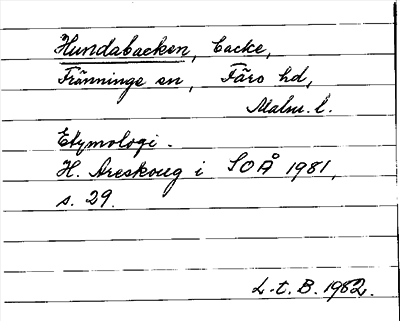 Hundabacken, backe,
Tranninge sn, Färs hd,
Malm. l.
Etymologi.
H. Areskoug i SOÅ 1981,
s. 29.
L.-t. B. 1982.